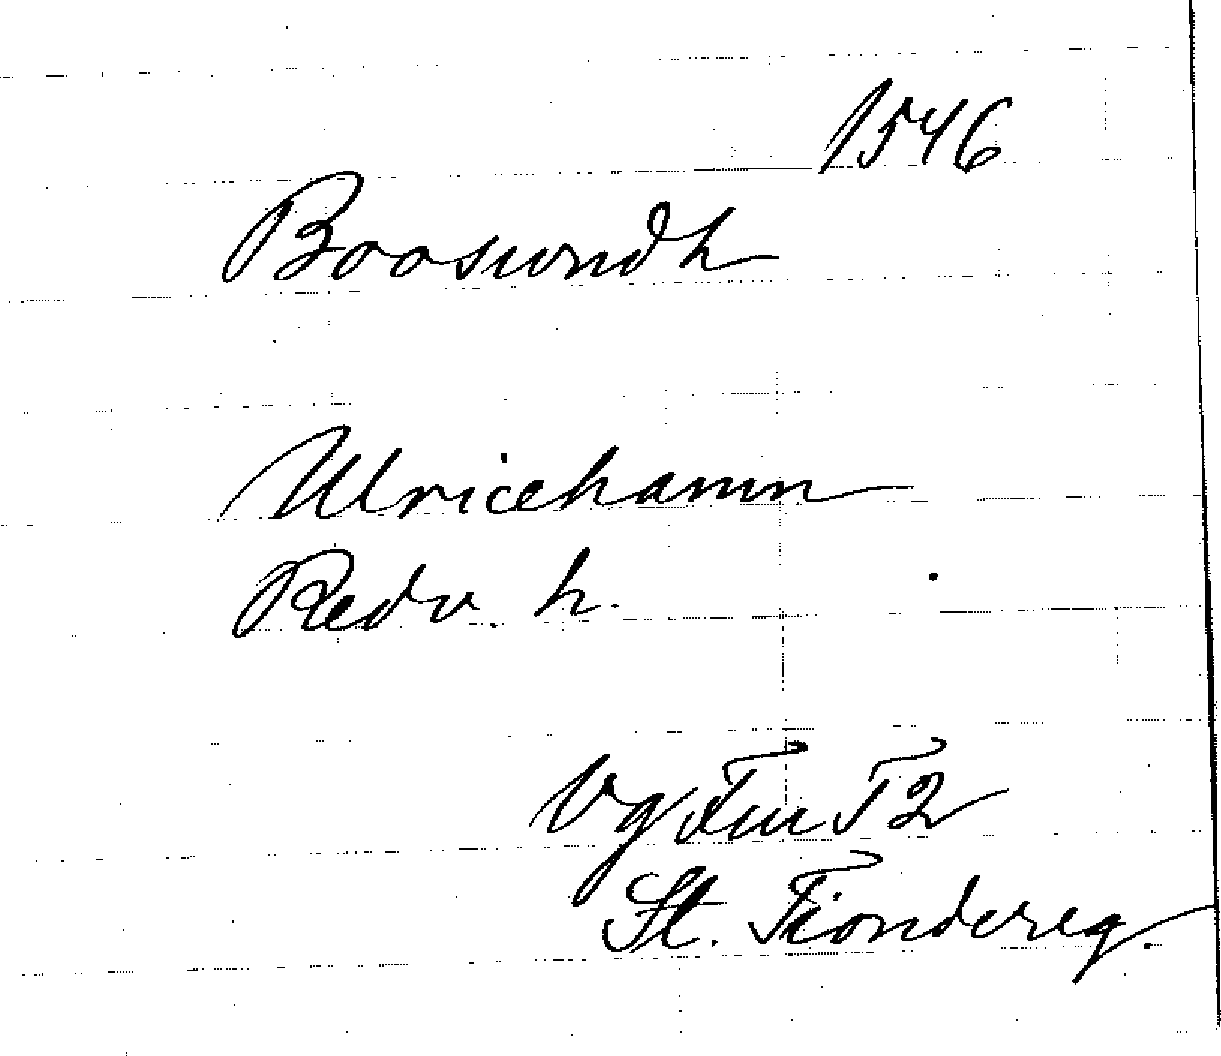 1546
Boosundh
Ulricehamn
Redv. h.
Vg Fru T2
St. Tiondereg.